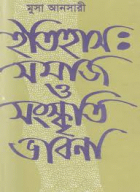 মুসা আনসারী
ইতিহাস:
সমাজ
ও
সংস্কৃতি
ভাবনা